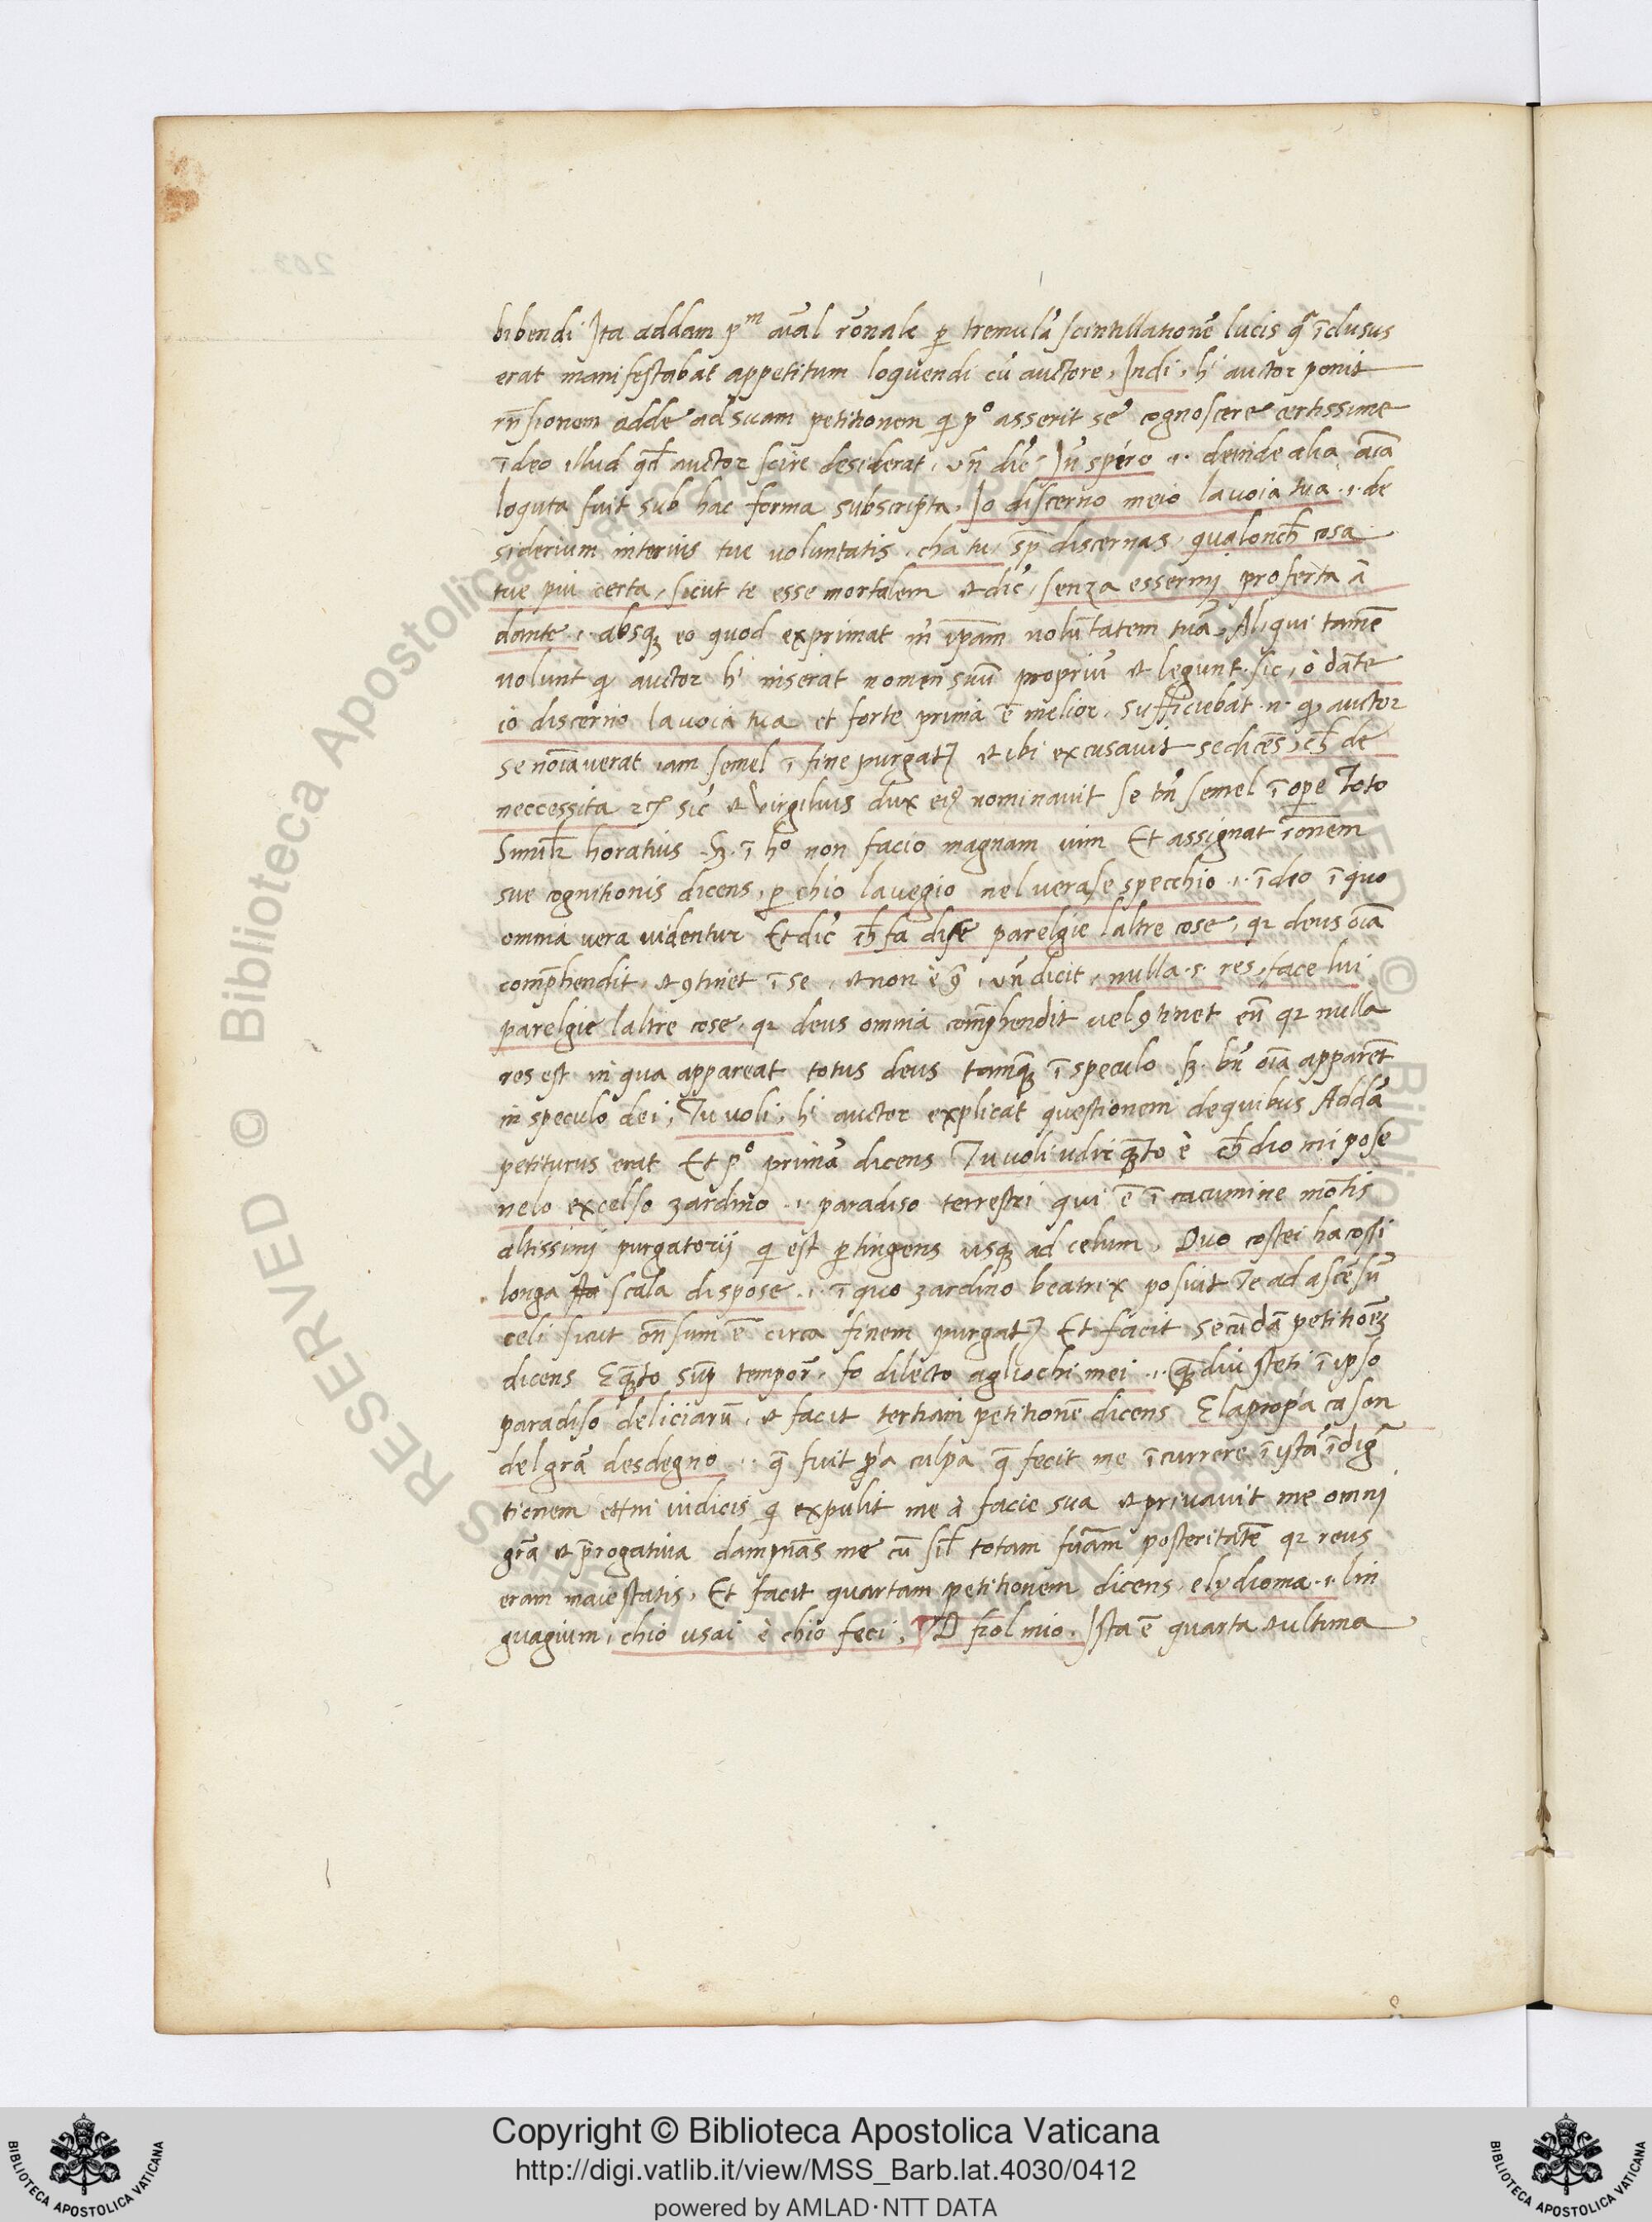 bibendi Ita addam pᵐ aīal rōnale p̱ tremulā scintillationē lucis q̄ īclusus
erat manifestabat appetitum loquendi cū auctore, Indi, hⁱ auctor ponit
rn̄sionem adde ad suam petitionem qͥ pº asserit se cognoscere certissime
ī deo illud qd̄ auctor scire desiderat, vn̄ dīc In spéro .i. deinde alia aīa
loquta fuit sub hac forma subscripta, Io discerno meio la voia tua .i. de
siderium interius tue voluntatis, cha tu, sp̄ discernas, qualonch̄ cosa
tue piu certa, sicut te esse mortalem et dīc, senza essermi proferta à
dante .i. absqꝫ eo quod exprimat m̄ ip̄am volūtatem tuā, Aliqui tamē
volunt qͥ auctor hⁱ inserat nomen suū propriū et legunt sic, ò dāte
io discerno la voia tua et forte prima ē melior, sufficiebat .n. qͥ auctor
se noīaverat iam semel ī fine purgatȷ et ibi excusavit se dicēs, ch̄ de
neccessita ⁊cͥ sic̄ et Virgilius dux eiꝰ nominavit se tn̄ semel ī ope toto
Simil̄r horatius .sꝫ. ī hº non facio magnam vim Et assignat rōnem
sue cognitionis dicens, p̱ chio la vegio nel verase specchio .i. ī deo ī quo
omnia vera videntur Et dīc ch̄ fa di se parelgie laltre cose, qꝛ deus oīa
comp̄hendit, et ꝯtinet ī se, et non è ꝯͣ, vn̄ dicit, nulla .s. res, face lui
parelgie laltre cose, qꝛ deus omnia comp̄hendit vel ꝯtinet eū qꝛ nulla
res est in qua appareat totus deus tamqꝫ ī speculo sꝫ bn̄ oīa apparēt
in speculo dei, Tu voli, hⁱ auctor explicat questionem de quibus Addā
petiturus erat Et pº primā dicens Tu voli udir qꝫto è ch̄ dio mi pose
nelo excelso zardino .i. paradiso terrestri qui ē ī cacumine mōtis
altissimi purgatorij qͥ est p̱tingens usqꝫ ad celum, Duo costei ha cossi
longa sta scala dispose .i. ī quo zardino beatrix posuit te ad ascēsū
celi sicut on̄sum ē circa finem purgatȷ Et facit secūdā petitiōeꝫ
dicens E qꝫto sup̄ tempor̄, fo dilecto agliochi mei .i. qꝫ diu steti ī ipso
paradiso deliciarū, et facit tertiam petitionē dicens E la prop̄a cason
del grā desdegno .i. q̄ fuit pp̄a culpa q̄ fecit me īcurrere ī ystā īdig̅
tionem et̄ni iudicis qͥ expulit me à facie sua et privavit me omni
grā et p̄rogativa dampnās me cū sil̄ totam fut̄am posteritatē qꝛ reus
eram maiestatis, Et facit quartam petitionem dicens, elydioma .i. lin
guagium, chio usai è chio feci, D fiol mio, Ista ē quarta et ultima
Copyright © Biblioteca Apostolica Vaticana
http://digi.vatlib.it/view/MSS_Barb.lat.4030/0412
powered by AMLAD·NTT DATA